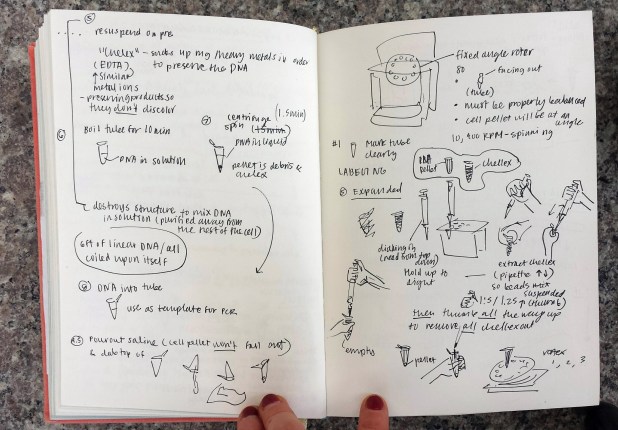 ⑤ resuspend on pre
"Chelex" - sucks up mg/heavy metals in order
(EDTA) to preserve the DNA
↑ similar
metal ions
- preserving products so
they don't discolor
⑥ Boil tube for 10 min
DNA in solution
⑦ centrifuge (1.5min)
spin (15min)
DNA in liquid
pellet is debris &
chelex
destroys structure to mix DNA
in solution (purified away from
the rest of the cell)
6ft of linear DNA/all
coiled upon itself
⑧ DNA into tube
use as template for PCR
4.5 Pour out saline (cell pellet won't fall out)
& dab top of
fixed angle rotor
80
facing out
(tube)
• must be properly balanced
• cell pellet will be at an
angle
10,400 RPM - spinning
#1 Mark tube
clearly
DNA
pellet
chellex
LABELING
② Expanded
dialing in
(need from top
down)
Hold up to
right
extract chellex
(pipette ↑↓)
so beads mix
suspended
1:5/1.25
then throttle all the way up
to remove all chellex out
empty
pellet
vortex
1, 2, 3